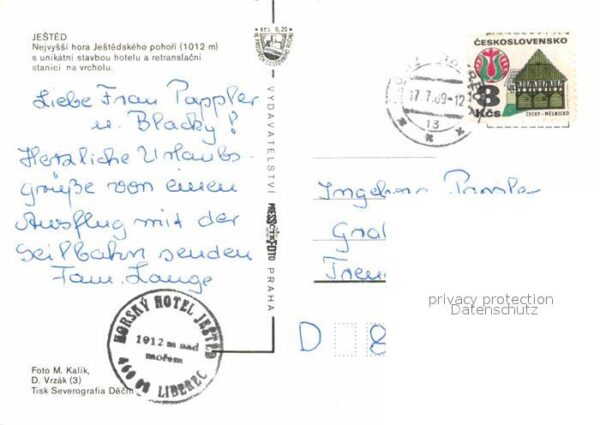 JEŠTĚD
Nejvyšší hora Ještědského pohoří (1012 m)
s unikátní stavbou hotelu a retranslační
stanicí na vrcholu.
Liebe Frau Pappler
u. Blacky!
Herzliche Urlaubs-
grüße von einem
Ausflug mit der
Seilbahn senden
Fam. Lange
HORSKÝ HOTEL JEŠTĚD
1012 m nad
mořem
460 08 LIBEREC
Foto M. Kalík,
D. Vrzák (3)
Tisk Severografia Děčín
Kčs 0,20
VYDAVATELSTVÍ PRESSFOTO PRAHA
17.7.89-12
13
ČESKOSLOVENSKO
3
Kčs
ČECHY - MĚLNICKO
Ingeborg
D 8
privacy protection
Datenschutz